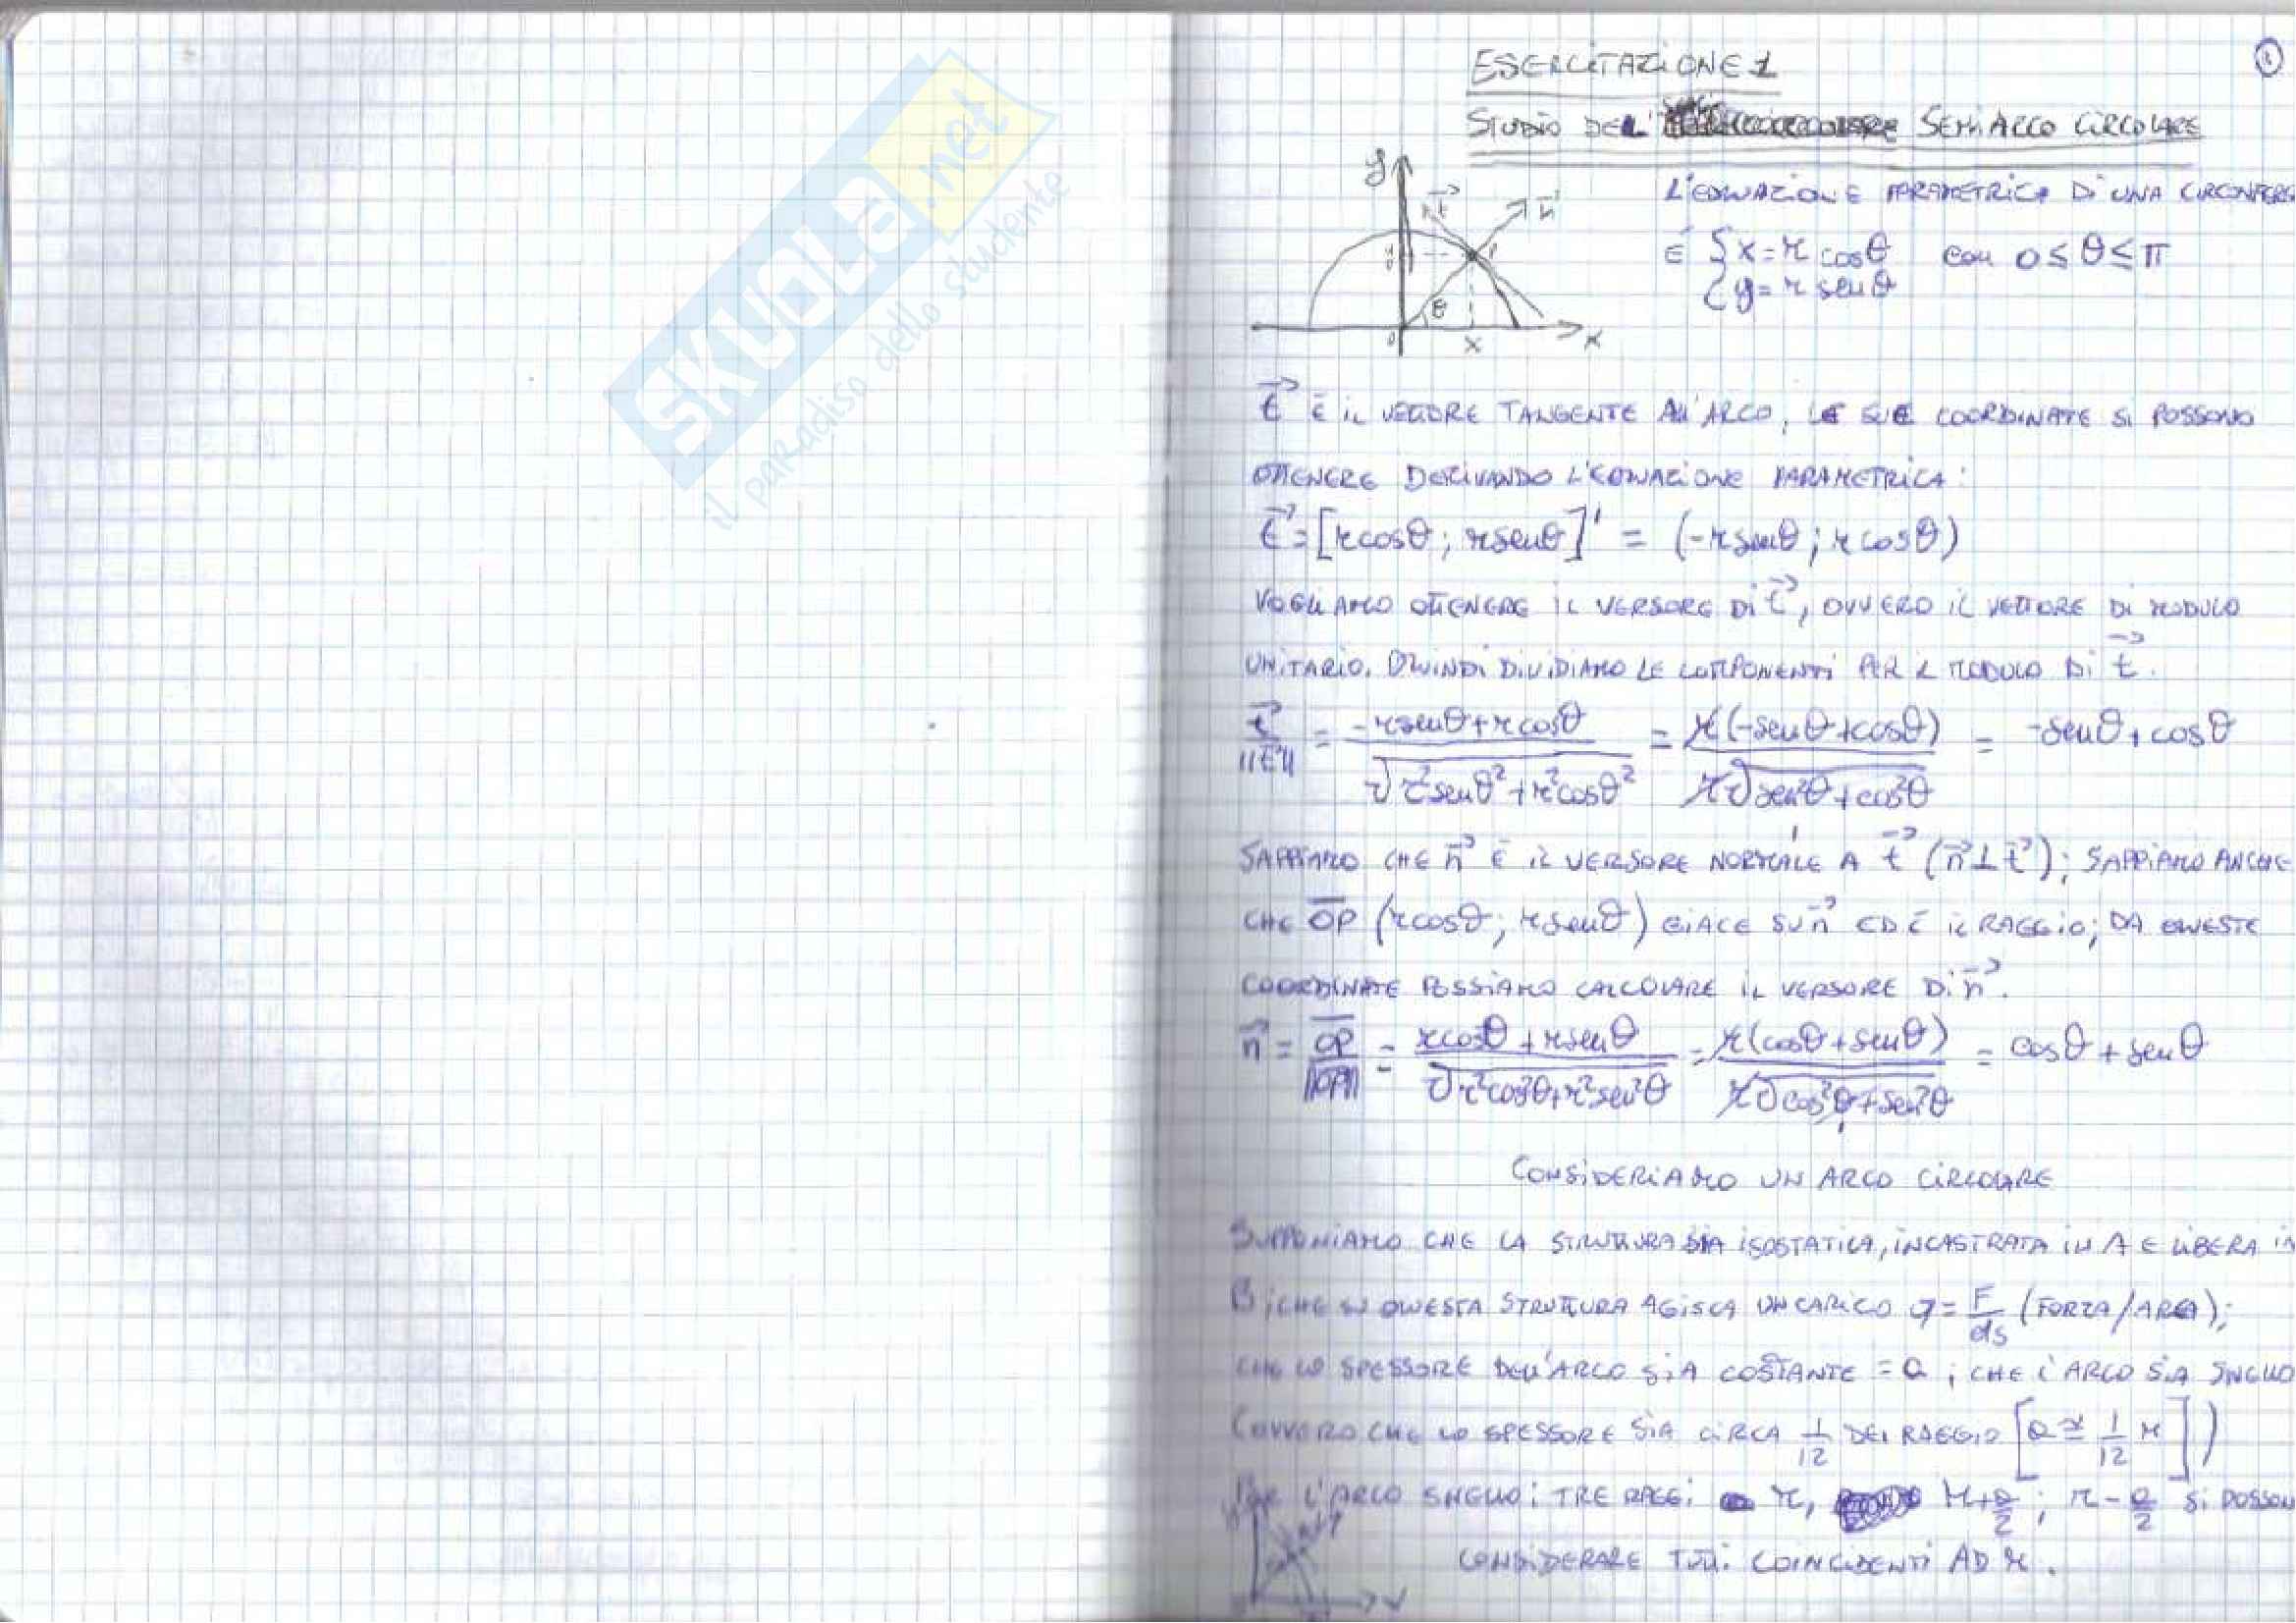 SKUOLA.net
il paradiso dello studente
①
ESERCITAZIONE 1
STUDIO DELL' SEMIARCO CIRCOLARE
y
t⃗
n⃗
P
y
θ
0
x
x
L'EQUAZIONE PARAMETRICA DI UNA CIRCONFERE
È { x = r cosθ con 0 ≤ θ ≤ π
{ y = r senθ
t⃗ È IL VETTORE TANGENTE ALL'ARCO, LE SUE COORDINATE SI POSSONO
OTTENERE DERIVANDO L'EQUAZIONE PARAMETRICA:
t⃗ = [r cosθ ; r senθ]' = (-r senθ ; r cosθ)
VOGLIAMO OTTENERE IL VERSORE DI t⃗, OVVERO IL VETTORE DI MODULO
UNITARIO. QUINDI DIVIDIAMO LE COMPONENTI PER IL MODULO DI t⃗.
t⃗/||t⃗|| = (-r senθ + r cosθ)/√(r² senθ² + r² cosθ²) = r(-senθ + cosθ)/(r√(sen²θ + cos²θ)) = -senθ + cosθ
SAPPIAMO CHE n⃗ È IL VERSORE NORMALE A t⃗ (n⃗ ⊥ t⃗); SAPPIAMO ANCHE
CHE OP (r cosθ ; r senθ) GIACE SU n⃗ ED È IL RAGGIO; DA QUESTE
COORDINATE POSSIAMO CALCOLARE IL VERSORE DI n⃗.
n⃗ = OP/||OP|| = (r cosθ + r senθ)/√(r² cos²θ + r² sen²θ) = r(cosθ + senθ)/(r√(cos²θ + sen²θ)) = cosθ + senθ
CONSIDERIAMO UN ARCO CIRCOLARE
SUPPONIAMO CHE LA STRUTTURA SIA ISOSTATICA, INCASTRATA IN A E LIBERA IN
B; CHE SU QUESTA STRUTTURA AGISCA UN CARICO q = F/ds (FORZA/AREA);
CHE LO SPESSORE DELL'ARCO SIA COSTANTE = a ; CHE L'ARCO SIA SNELLO
(OVVERO CHE LO SPESSORE SIA CIRCA 1/12 DEL RAGGIO [a ≅ 1/12 r])
PER L'ARCO SNELLO I TRE RAGGI r, r + a/2 ; r - a/2 SI POSSON
CONSIDERARE TUTTI COINCIDENTI AD r.